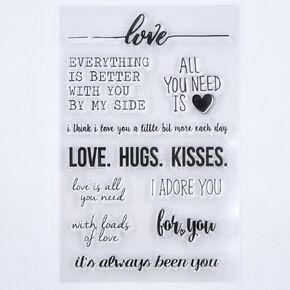 love
EVERYTHING
IS BETTER
WITH YOU
BY MY SIDE
ALL
YOU NEED
IS
i think i love you a little bit more each day
LOVE. HUGS. KISSES.
love is all
you need
I ADORE YOU
with loads
of love
for you
it's always been you